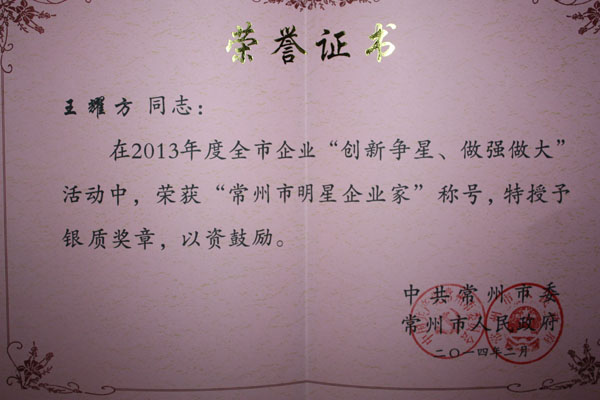 荣誉证书
王耀方 同志：
在2013年度全市企业“创新争星、做强做大”
活动中，荣获“常州市明星企业家”称号，特授予
银质奖章，以资鼓励。
中共常州市委
常州市人民政府
二〇一四年二月